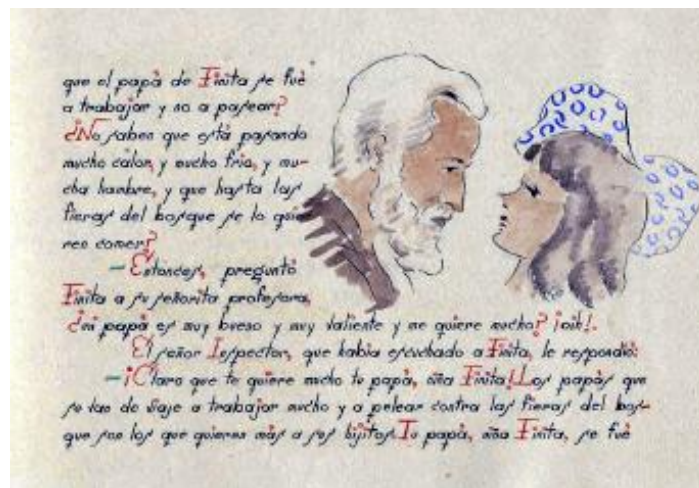 que el papá de Finita se fué
a trabajar y no a pasear?
¿No saben que está pasando
mucho calor, y mucho frio, y mu-
cha hambre, y que hasta las
fieras del bosque se lo quie
ren comer?
— Entonces, preguntó
Finita a su señorita profesora,
¿mi papá es muy bueno y muy valiente y me quiere mucho? ¡oik!.
El señor Inspector, que habia escuchado a Finita, le respondió:
— ¡Claro que te quiere mucho tu papá, niña Finita! Los papás que
se van de viaje a trabajar mucho y a pelear contra las fieras del bos-
que son los que quieren más a sus hijitos. Tu papá, niña Finita, se fué